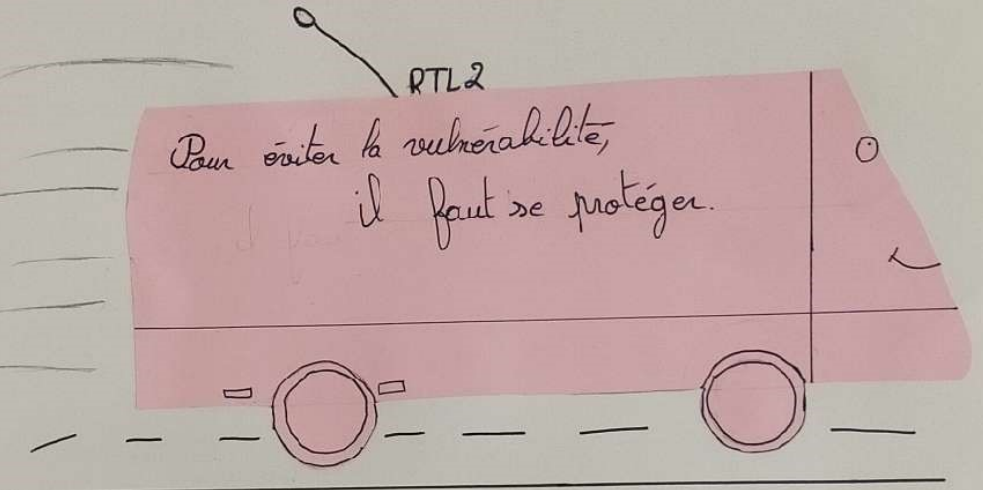 RTL2
Pour éviter la vulnérabilité,
il faut se protéger.